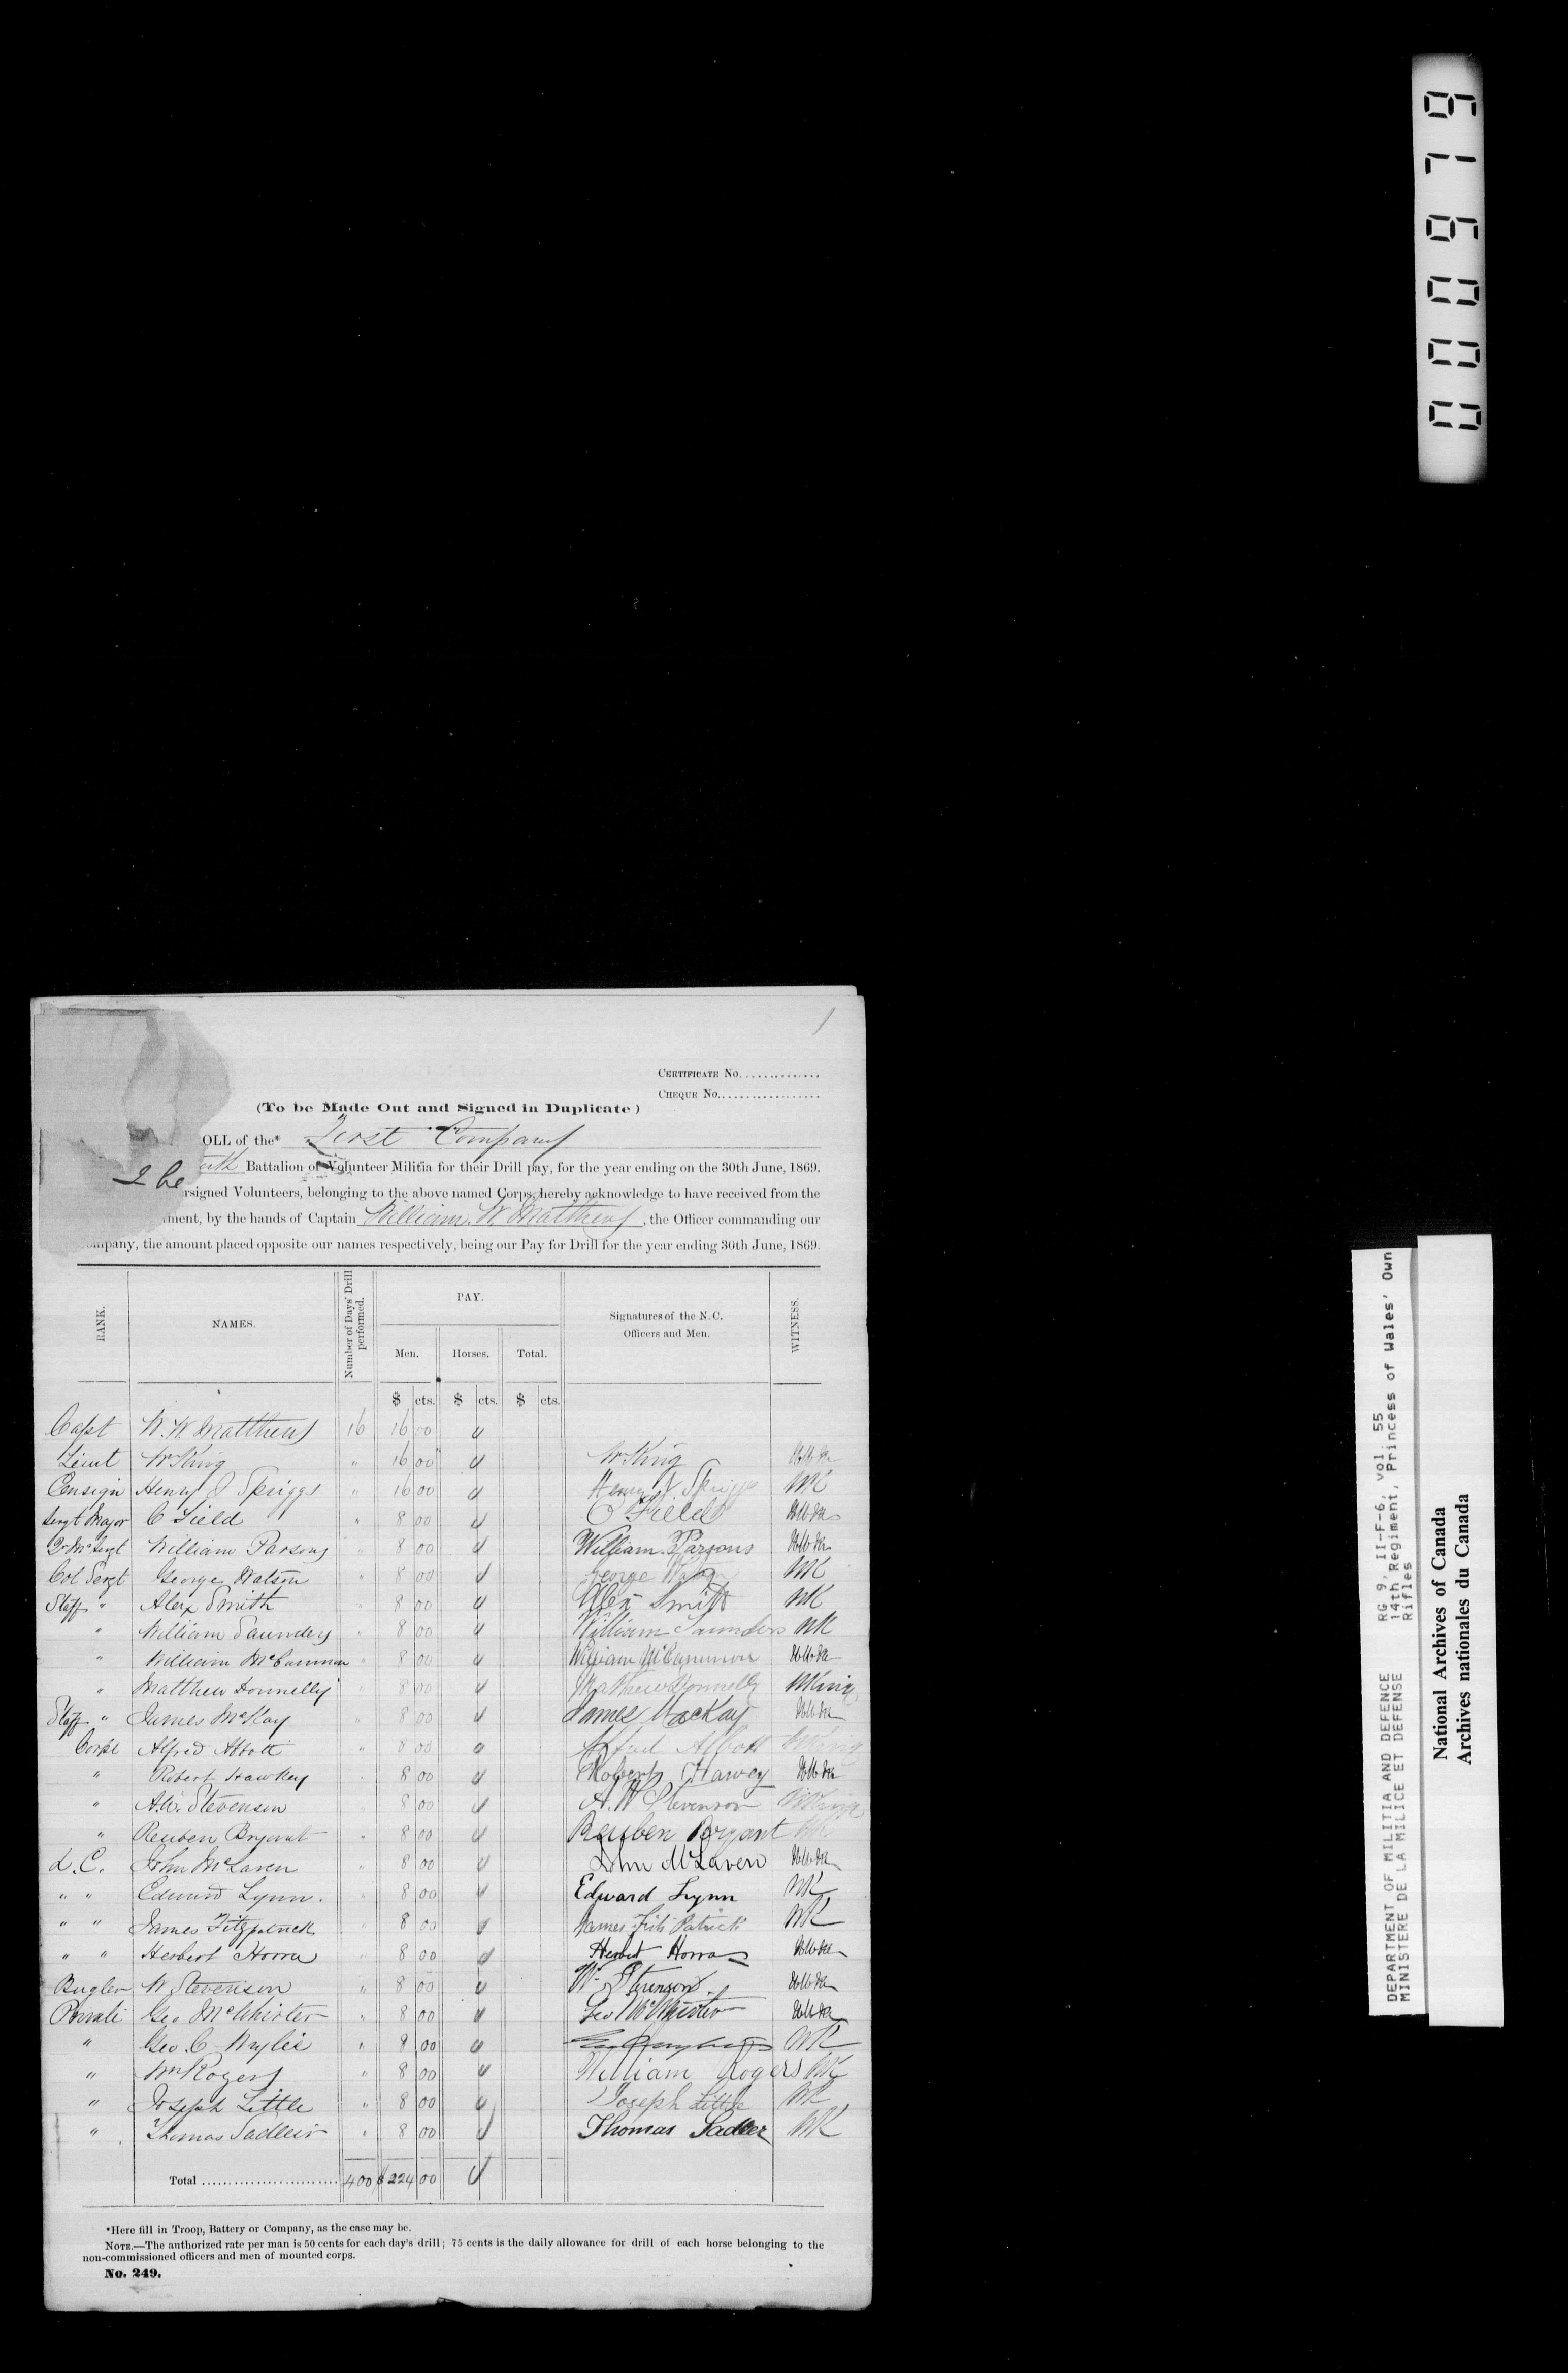 1
CERTIFICATE No..............
CHEQUE No..................
(To be Made Out and Signed in Duplicate)
OLL of the* First Company
Battalion of Volunteer Militia for their Drill pay, for the year ending on the 30th June, 1869.
rsigned Volunteers, belonging to the above named Corps, hereby acknowledge to have received from the
nment, by the hands of Captain William W. Matthews, the Officer commanding our
ompany, the amount placed opposite our names respectively, being our Pay for Drill for the year ending 30th June, 1869.
RANK. NAMES. Number of Days' Drill performed. PAY. Signatures of the N.C. Officers and Men. WITNESS.
Men. Horses. Total.
$ cts. $ cts. $ cts.
Capt W. W. Matthews 16 16 00
Lieut Wm King " 16 00 Wm King
Ensign Henry J Spriggs " 16 00 Henry J Spriggs WK
Sergt Major C Field " 8 00 C Field
Qr Mr Sergt William Parsons " 8 00 William Parsons
Col Sergt George Watson " 8 00 George Watson WK
Staff " Alex Smith " 8 00 Alex Smith WK
" William Saunders " 8 00 William Saunders WK
" William McCammon " 8 00 William McCammon
" Matthew Donnelly " 8 00 Mathew Donnelly WKing
Staff " James McKay " 8 00 James MacKay
Corpl Alfred Abbott " 8 00 Alfred Abbott WKing
" Robert Hawkey " 8 00 Robert Harvey
" A.W. Stevenson " 8 00 A. W Stevenson WKing
" Reuben Bryant " 8 00 Reuben Bryant WK
L. C. John McLaren " 8 00 John McLaren
" " Edward Lynn. " 8 00 Edward Lynn WK
" " James Fitzpatrick " 8 00 James Fitz Patrick WK
" " Herbert Horra " 8 00 Herbert Horra
Bugler W Stevenson " 8 00
Private Geo McWhirter " 8 00 Geo McWhirter
" Geo. C Wylie " 8 00 WK
" Wm Rogers " 8 00 William Rogers WK
" Joseph Little " 8 00 Joseph Little WK
" Thomas Sadleir " 8 00 Thomas Sadleer WK
Total ........................ 400 $224 00
*Here fill in Troop, Battery or Company, as the case may be.
NOTE.—The authorized rate per man is 50 cents for each day's drill; 75 cents is the daily allowance for drill of each horse belonging to the
non-commissioned officers and men of mounted corps.
No. 249.
DEPARTMENT OF MILITIA AND DEFENCE RG 9, II-F-6, vol. 55
MINISTERE DE LA MILICE ET DEFENSE 14th Regiment, Princess of Wales' Own
Rifles
National Archives of Canada
Archives nationales du Canada